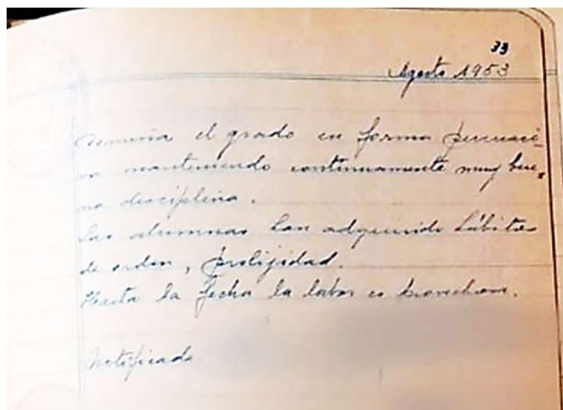 33
Agosto 1953
Domina el grado en forma persuasi-
va manteniendo continuamente muy bue-
na disciplina.
Las alumnas han adquirido hábitos
de orden, prolijidad.
Hasta la fecha la labor es provechosa.
Notificada